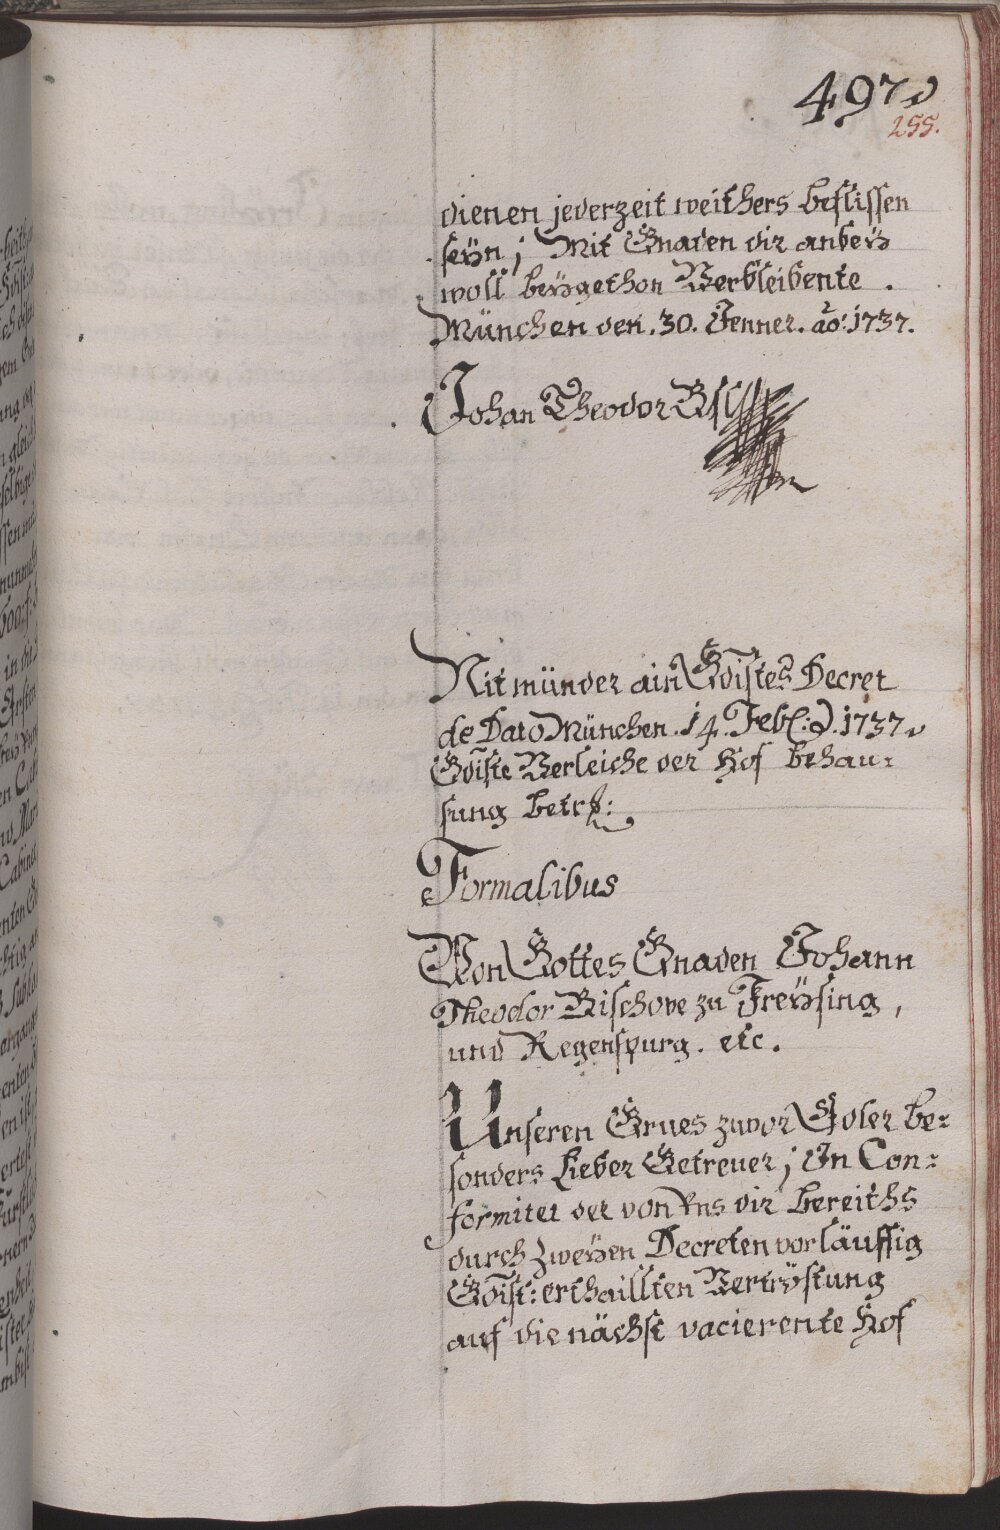 497
255.
dienen jederzeit weithers beflissen
seÿn; Mit Gnaden dir anbeÿ
woll beÿgethon Verbleibente.
München den. 30. Jenner. ao: 1737.
Johan Theodor
Nit münder ain Gdistes Decret
de Dato München. 14. Feb: 1737
Gdiste Verleiche der Hof behau:
sung betr:
Formalibus
Von Gottes Gnaden Johann
Theodor Bischove zu Freÿsing,
und Regenspurg. etc.
Unseren Grues zuvor Edler be:
sonders Lieber Getreuer; In Con:
formitet der von Uns dir bereiths
durch zweÿen Decreten vorläuffig
Gdist: erthaillten Vertröstung
auf die nächst vacierente Hof